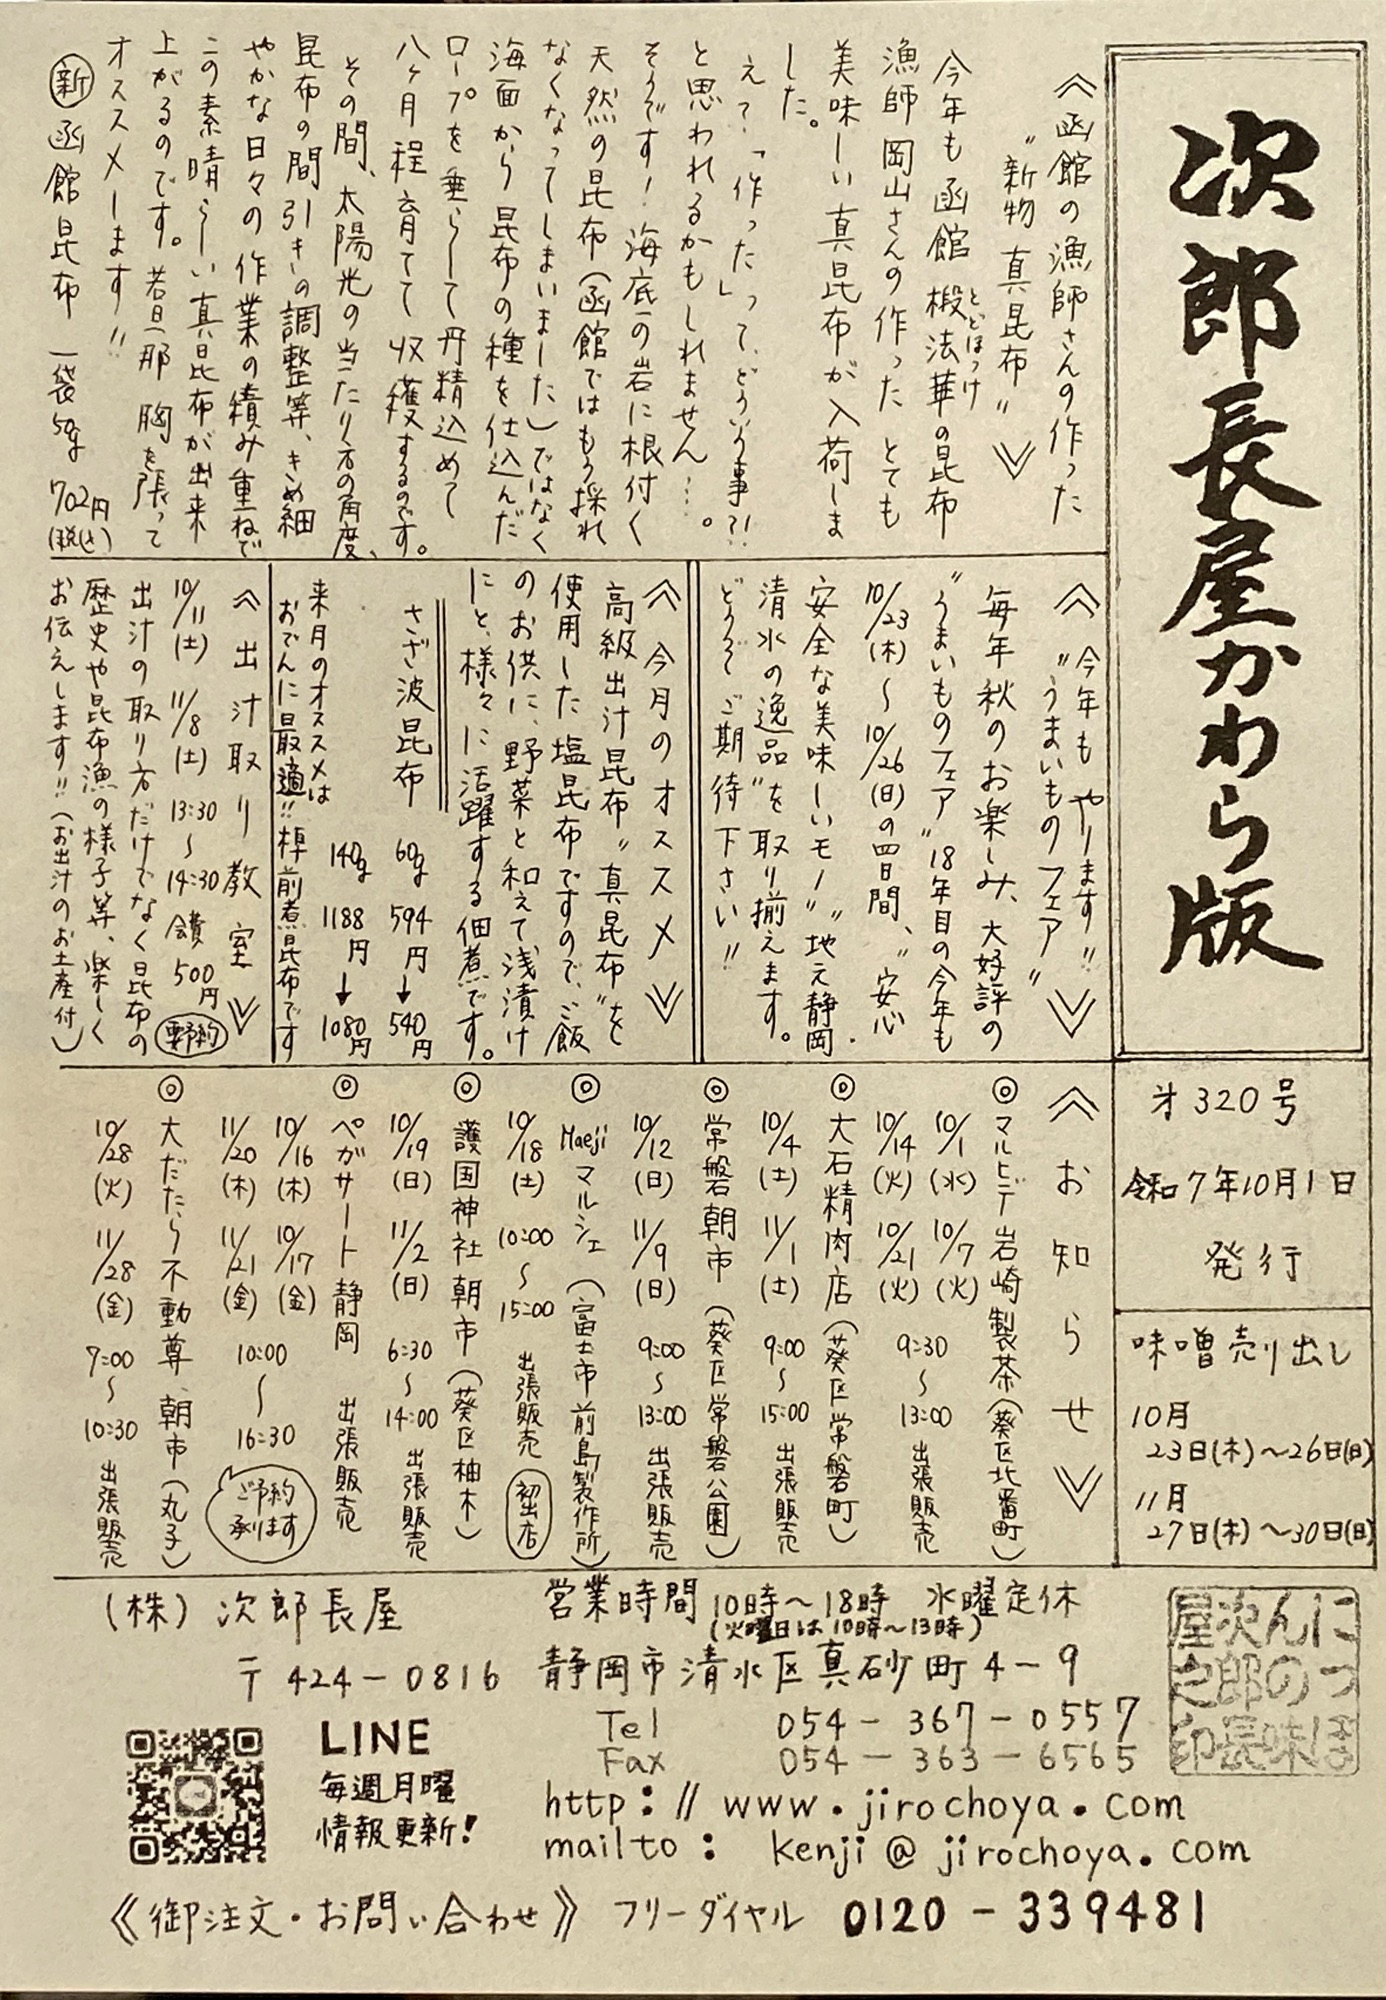 次郎長屋かわら版
才320号
令和7年10月1日
発行
味噌売り出し
10月
23日(木)～26日(日)
11月
27日(木)～30日(日)
≪函館の漁師さんの作った
〝新物 真昆布〟≫
今年も函館 椴法華の昆布
とどほっけ
漁師 岡山さんの作った とても
美味しい真昆布が入荷しま
した。
えて、「作った」って、どういう事?!
と思われるかもしれません…。
そうです! 海底の岩に根付く
天然の昆布(函館ではもう採れ
なくなってしまいました)ではなく
海面から昆布の種を仕込んだ
ロープを垂らして丹精込めて
八ヶ月程育てて収穫するのです。
その間、太陽光の当たり方の角度、
昆布の間引きの調整等、きめ細
やかな日々の作業の積み重ねで
この素晴らしい真昆布が出来
上がるのです。若旦那 胸を張って
オススメします!!
新 函館昆布 一袋50g 702円
(税込)
≪今年もやります!!
〝うまいものフェア〟≫
毎年秋のお楽しみ、大好評の
〝うまいものフェア〟18年目の今年も
10/23(木)～10/26(日)の四日間、〝安心
安全な美味しいモノ〟〝地元静岡・
清水の逸品〟を取り揃えます。
どうぞご期待下さい!!
≪今月のオススメ≫
高級出汁昆布〝真昆布〟を
使用した塩昆布ですので、ご飯
のお供に、野菜と和えて浅漬け
にと、様々に活躍する佃煮です。
さざ波昆布 60g 594円→540円
140g 1188円→1080円
来月のオススメは
おでんに最適!! 棹前煮昆布です
≪出汁取り教室≫
10/11(土) 11/8(土) 13:30～14:30 会費500円 要予約
出汁の取り方だけでなく昆布の
歴史や昆布漁の様子等、楽しく
お伝えします!!(お出汁のお土産付)
≪お知らせ≫
◎マルヒデ岩崎製茶(葵区北番町)
10/1(水) 10/7(火)
10/14(火) 10/21(火) 9:30～13:00 出張販売
◎大石精肉店(葵区常磐町)
10/4(土) 11/1(土) 9:00～15:00 出張販売
◎常磐朝市(葵区常磐公園)
10/12(日) 11/9(日) 9:00～13:00 出張販売
◎Maejiマルシェ(富士市前島製作所)
10/18(土) 10:00～15:00 出張販売 初出店
◎護国神社朝市(葵区柚木)
10/19(日) 11/2(日) 6:30～14:00 出張販売
◎ペガサート静岡 出張販売
10/16(木) 10/17(金)
11/20(木) 11/21(金) 10:00～16:30
ご予約
承ります
◎大だたら不動尊 朝市(丸子)
10/28(火) 11/28(金) 7:00～10:30 出張販売
(株)次郎長屋 営業時間 10時～18時 水曜定休
(火曜日は10時～13時)
〒424-0816 静岡市清水区真砂町4-9
Tel 054-367-0557
Fax 054-363-6565
LINE
毎週月曜
情報更新!
http://www.jirochoya.com
mailto: kenji@jirochoya.com
《御注文・お問い合わせ》 フリーダイヤル 0120-339481
につぽ
んの味
次郎長
屋之印